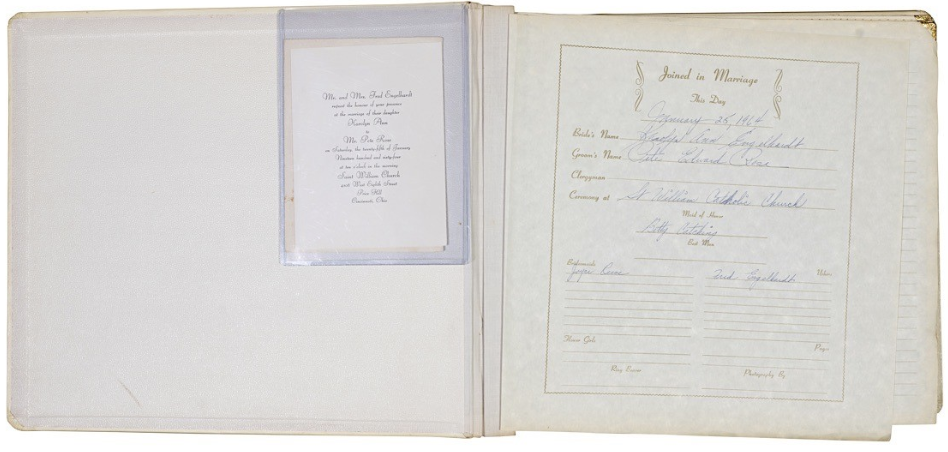 Mr. and Mrs. Fred Engelhardt
request the honour of your presence
at the marriage of their daughter
Karolyn Ann
to
Mr. Pete Rose
on Saturday, the twenty-fifth of January
Nineteen hundred and sixty-four
at ten o'clock in the morning
Saint William Church
West Eighth Street
Price Hill
Cincinnati, Ohio
Joined in Marriage
This Day
January 25, 1964
Bride's Name Karolyn Ann Engelhardt
Groom's Name Peter Edward Rose
Clergyman
Ceremony at St William Catholic Church
Maid of Honor
Betty
Best Man
Bridesmaids
Ushers
Joyce
Fred Engelhardt
Flower Girls
Pages
Ring Bearer
Photography By